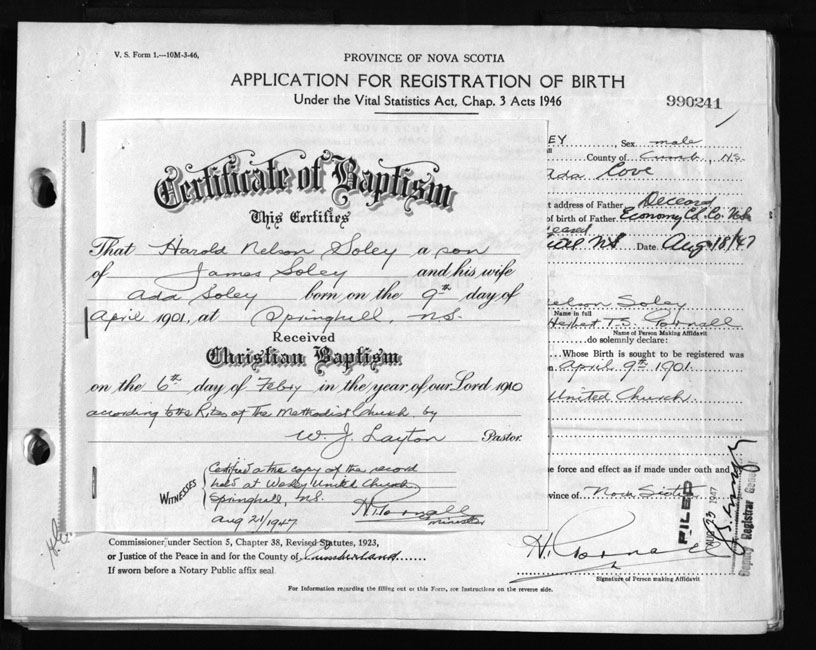 V. S. Form 1.—10M-3-46.
PROVINCE OF NOVA SCOTIA
APPLICATION FOR REGISTRATION OF BIRTH
Under the Vital Statistics Act, Chap. 3 Acts 1946
990241
EY, Sex male
County of Cumb, N.S.
Ada Cove
t address of Father Deceased
of birth of Father Economy Col. Co. N.S.
eased
N.S. Date Aug 18/47
Certificate of Baptism
This Certifies
That Harold Nelson Soley a son
of James Soley and his wife
Ada Soley born on the 9th day of
April 1901, at Springhill, N.S.
Received
Christian Baptism
on the 6th day of Feb'y in the year of our Lord 1910
according to the Rites of The Methodist Church by
W. J. Layton Pastor.
WITNESSES
Certified a true copy of the record
held at Wesley United Church
Springhill, N.S.
Aug 21/1947
Minister
elson Soley
Name in full
Herbert T.S.
Name of Person Making Affidavit
do solemnly declare:
Whose Birth is sought to be registered was
n April 9th 1901
United Church
me force and effect as if made under oath and
vince of Nova Scotia
FILED
AUG 23 1947
Deputy Registrar General
Commissioner under Section 5, Chapter 38, Revised Statutes, 1923,
or Justice of the Peace in and for the County of Cumberland
If sworn before a Notary Public affix seal.
Signature of Person making Affidavit
For Information regarding the filling out of this Form, see Instructions on the reverse side.